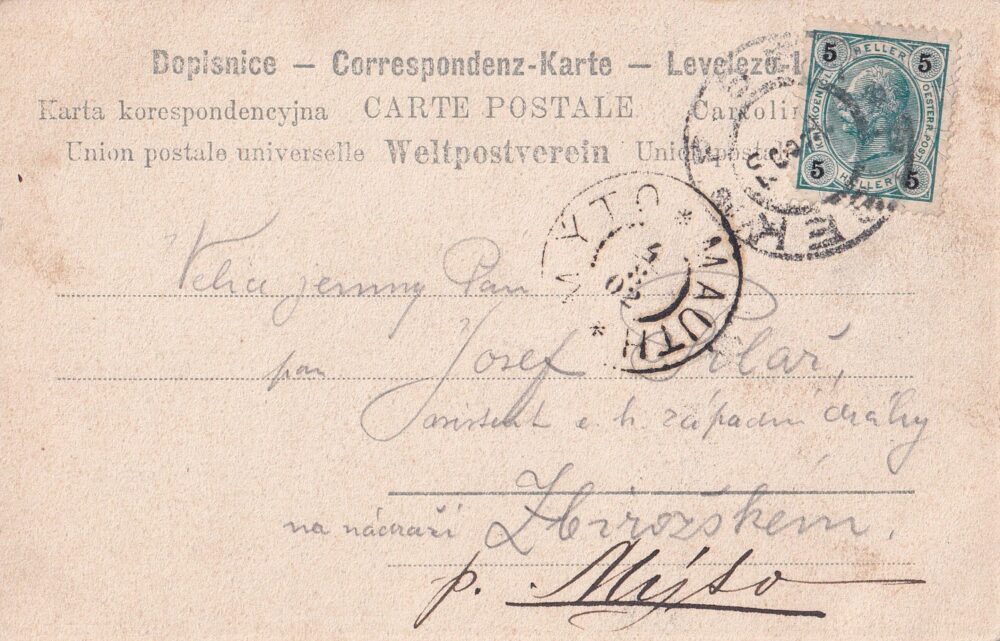 Dopisnice – Correspondenz-Karte – Levelező-l
Karta korespondencyjna CARTE POSTALE Cartolin
Union postale universelle Weltpostverein Union postale
5 HELLER 5
OESTERR. POST
5 HELLER 5
MÝTO * MAUTH *
Velice jemný Pan
pan Josef Pilař,
assistent c. k. západní dráhy
na nádraží Zbirožském.
p. Mýto